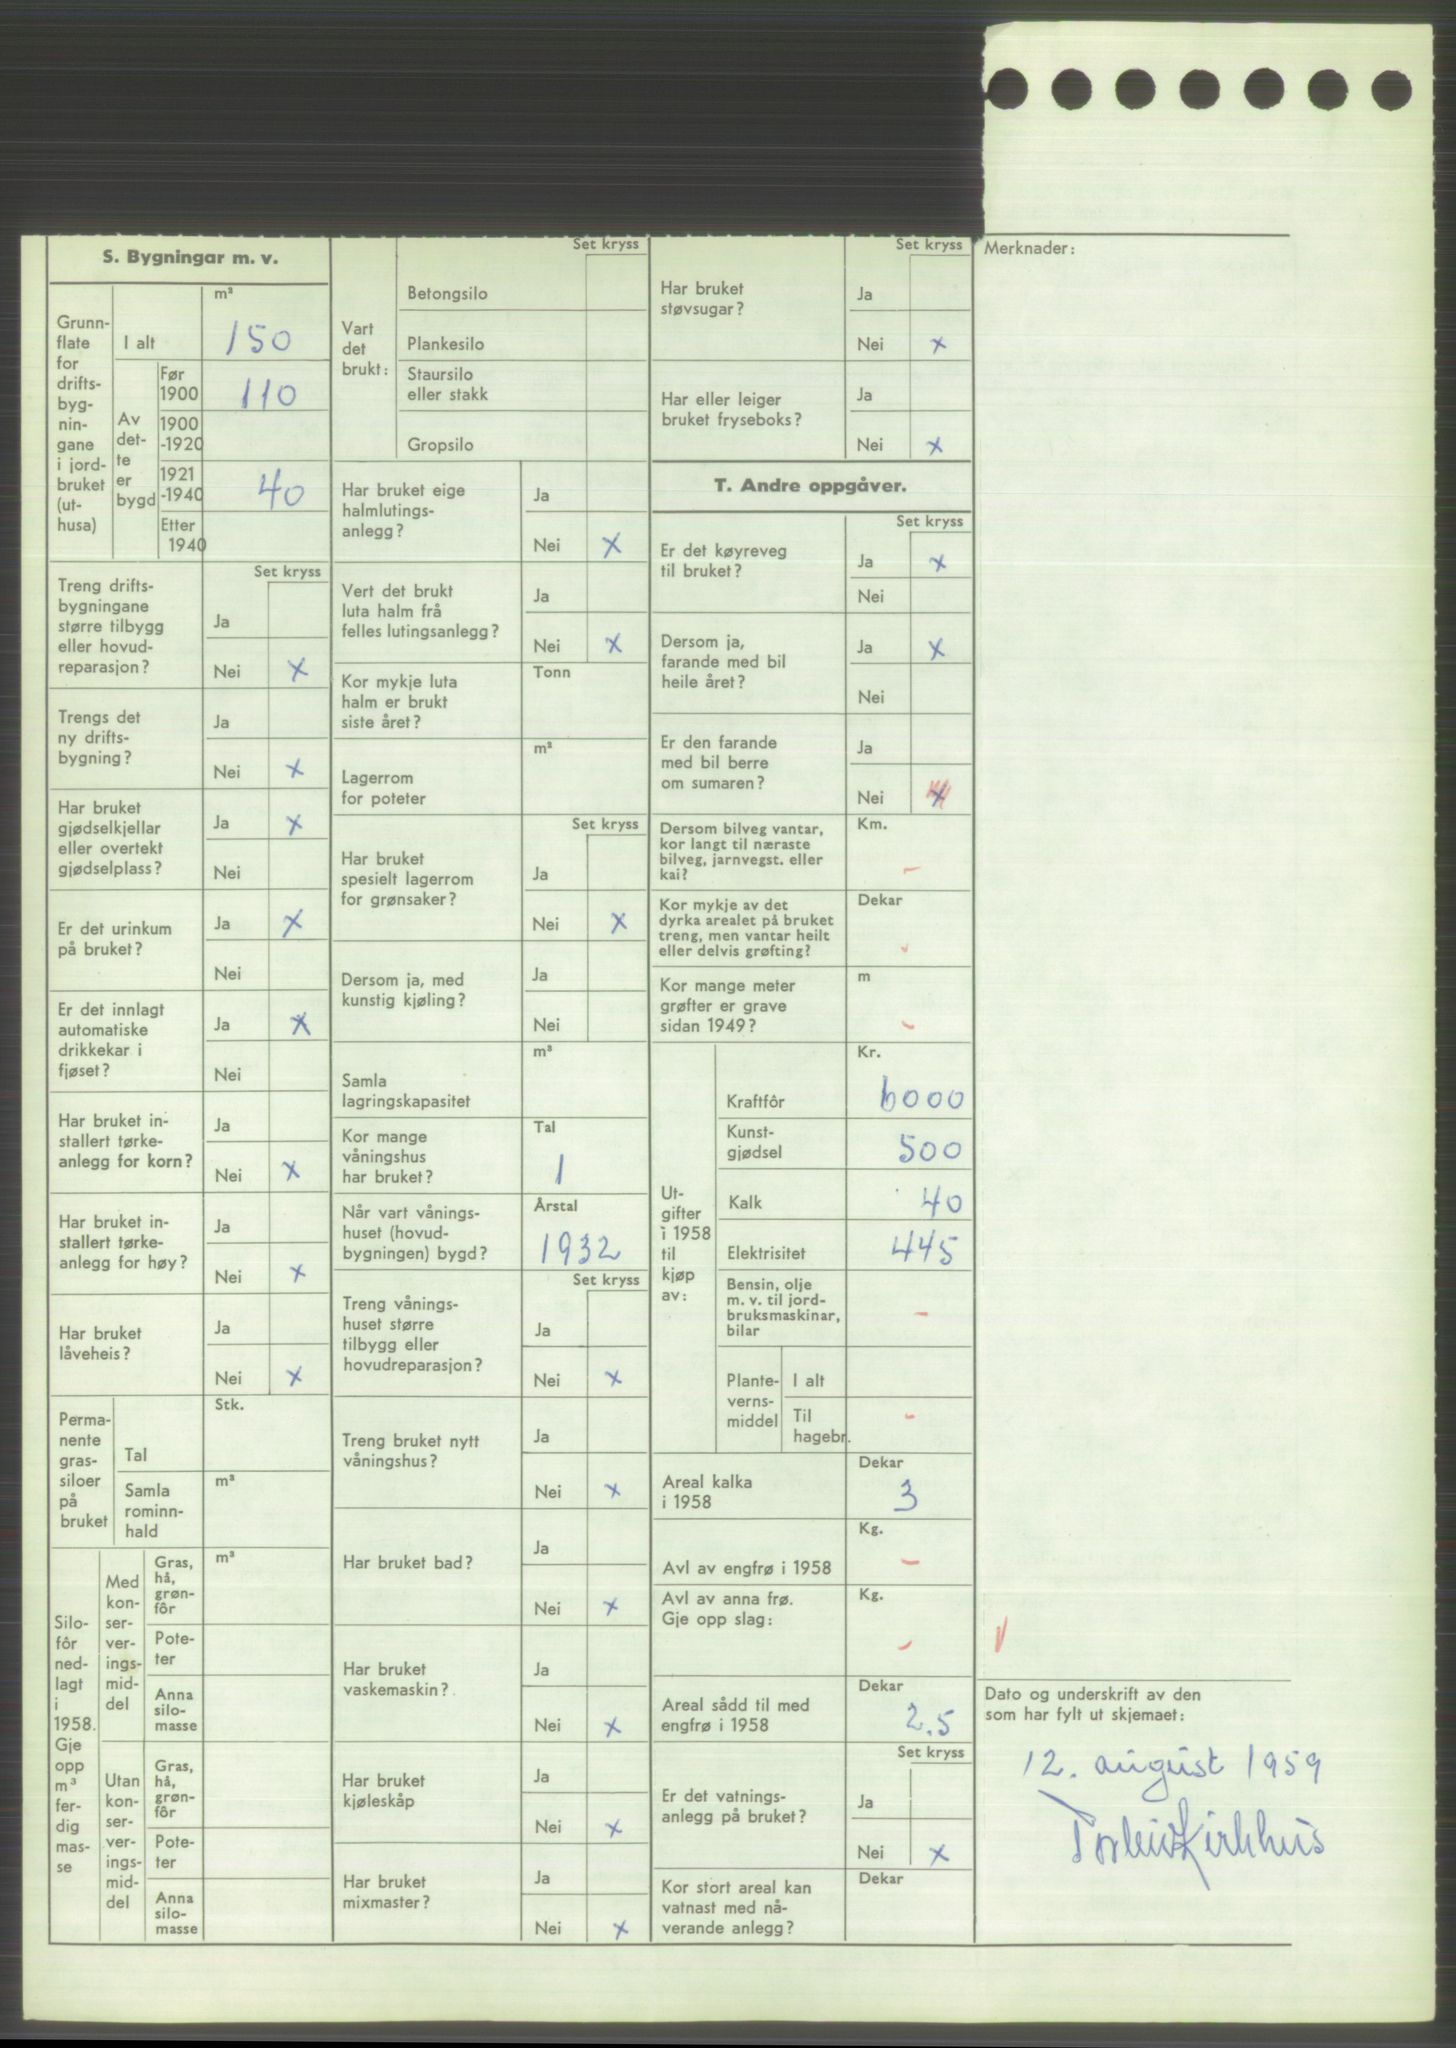 S. Bygningar m. v.
Grunn-
flate
for
drifts-
byg-
nin-
gane
i jord-
bruket
(ut-
husa)
I alt
m²
150
Av
det-
te
er
bygd
Før
1900
110
1900
-1920
1921
-1940
40
Etter
1940
Set kryss
Treng drifts-
bygningane
større tilbygg
eller hovud-
reparasjon?
Ja
Nei x
Trengs det
ny drifts-
bygning?
Ja
Nei x
Har bruket
gjødselkjellar
eller overtekt
gjødselplass?
Ja x
Nei
Er det urinkum
på bruket?
Ja x
Nei
Er det innlagt
automatiske
drikkekar i
fjøset?
Ja x
Nei
Har bruket in-
stallert tørke-
anlegg for korn?
Ja
Nei x
Har bruket in-
stallert tørke-
anlegg for høy?
Ja
Nei x
Har bruket
låveheis?
Ja
Nei x
Perma-
nente
gras-
siloer
på
bruket
Stk.
Tal
m³
Samla
rominn-
hald
Silo-
fôr
ned-
lagt
i
1958.
Gje
opp
m³
fer-
dig
mas-
se
Med
kon-
ser-
ver-
ings-
mid-
del
m³
Gras,
hå,
grøn-
fôr
Pote-
ter
Anna
silo-
masse
Utan
kon-
ser-
ver-
ings-
mid-
del
Gras,
hå,
grøn-
fôr
Pote-
ter
Anna
silo-
masse
Set kryss
Vart
det
brukt:
Betongsilo
Plankesilo
Staursilo
eller stakk
Gropsilo
Har bruket eige
halmlutings-
anlegg?
Ja
Nei x
Vert det brukt
luta halm frå
felles lutingsanlegg?
Ja
Nei x
Kor mykje luta
halm er brukt
siste året?
Tonn
Lagerrom
for poteter
m³
Set kryss
Har bruket
spesielt lagerrom
for grønsaker?
Ja
Nei x
Dersom ja, med
kunstig kjøling?
Ja
Nei
Samla
lagringskapasitet
m³
Kor mange
våningshus
har bruket?
Tal
1
Når vart vånings-
huset (hovud-
bygningen) bygd?
Årstal
1932
Set kryss
Treng vånings-
huset større
tilbygg eller
hovudreparasjon?
Ja
Nei x
Treng bruket nytt
våningshus?
Ja
Nei x
Har bruket bad?
Ja
Nei x
Har bruket
vaskemaskin?
Ja
Nei x
Har bruket
kjøleskåp
Ja
Nei x
Har bruket
mixmaster?
Ja
Nei x
Set kryss
Har bruket
støvsugar?
Ja
Nei x
Har eller leiger
bruket fryseboks?
Ja
Nei x
T. Andre oppgåver.
Set kryss
Er det køyreveg
til bruket?
Ja x
Nei
Dersom ja,
farande med bil
heile året?
Ja x
Nei
Er den farande
med bil berre
om sumaren?
Ja
Nei x
Dersom bilveg vantar,
kor langt til næraste
bilveg, jarnvegst. eller
kai?
Km.
-
Kor mykje av det
dyrka arealet på bruket
treng, men vantar heilt
eller delvis grøfting?
Dekar
-
Kor mange meter
grøfter er grave
sidan 1949?
m
-
Ut-
gifter
i 1958
til
kjøp
av:
Kr.
Kraftfôr
6000
Kunst-
gjødsel
500
Kalk
40
Elektrisitet
445
Bensin, olje
m. v. til jord-
bruksmaskinar,
bilar
-
Plante-
verns-
middel
I alt
Til
hagebr.
-
Areal kalka
i 1958
Dekar
3
Avl av engfrø i 1958
Kg.
-
Avl av anna frø.
Gje opp slag:
Kg.
-
Areal sådd til med
engfrø i 1958
Dekar
2.5
Set kryss
Er det vatnings-
anlegg på bruket?
Ja
Nei x
Kor stort areal kan
vatnast med nå-
verande anlegg?
Dekar
Merknader:
Dato og underskrift av den
som har fylt ut skjemaet:
12. august 1959
Torleiv Kirkhus